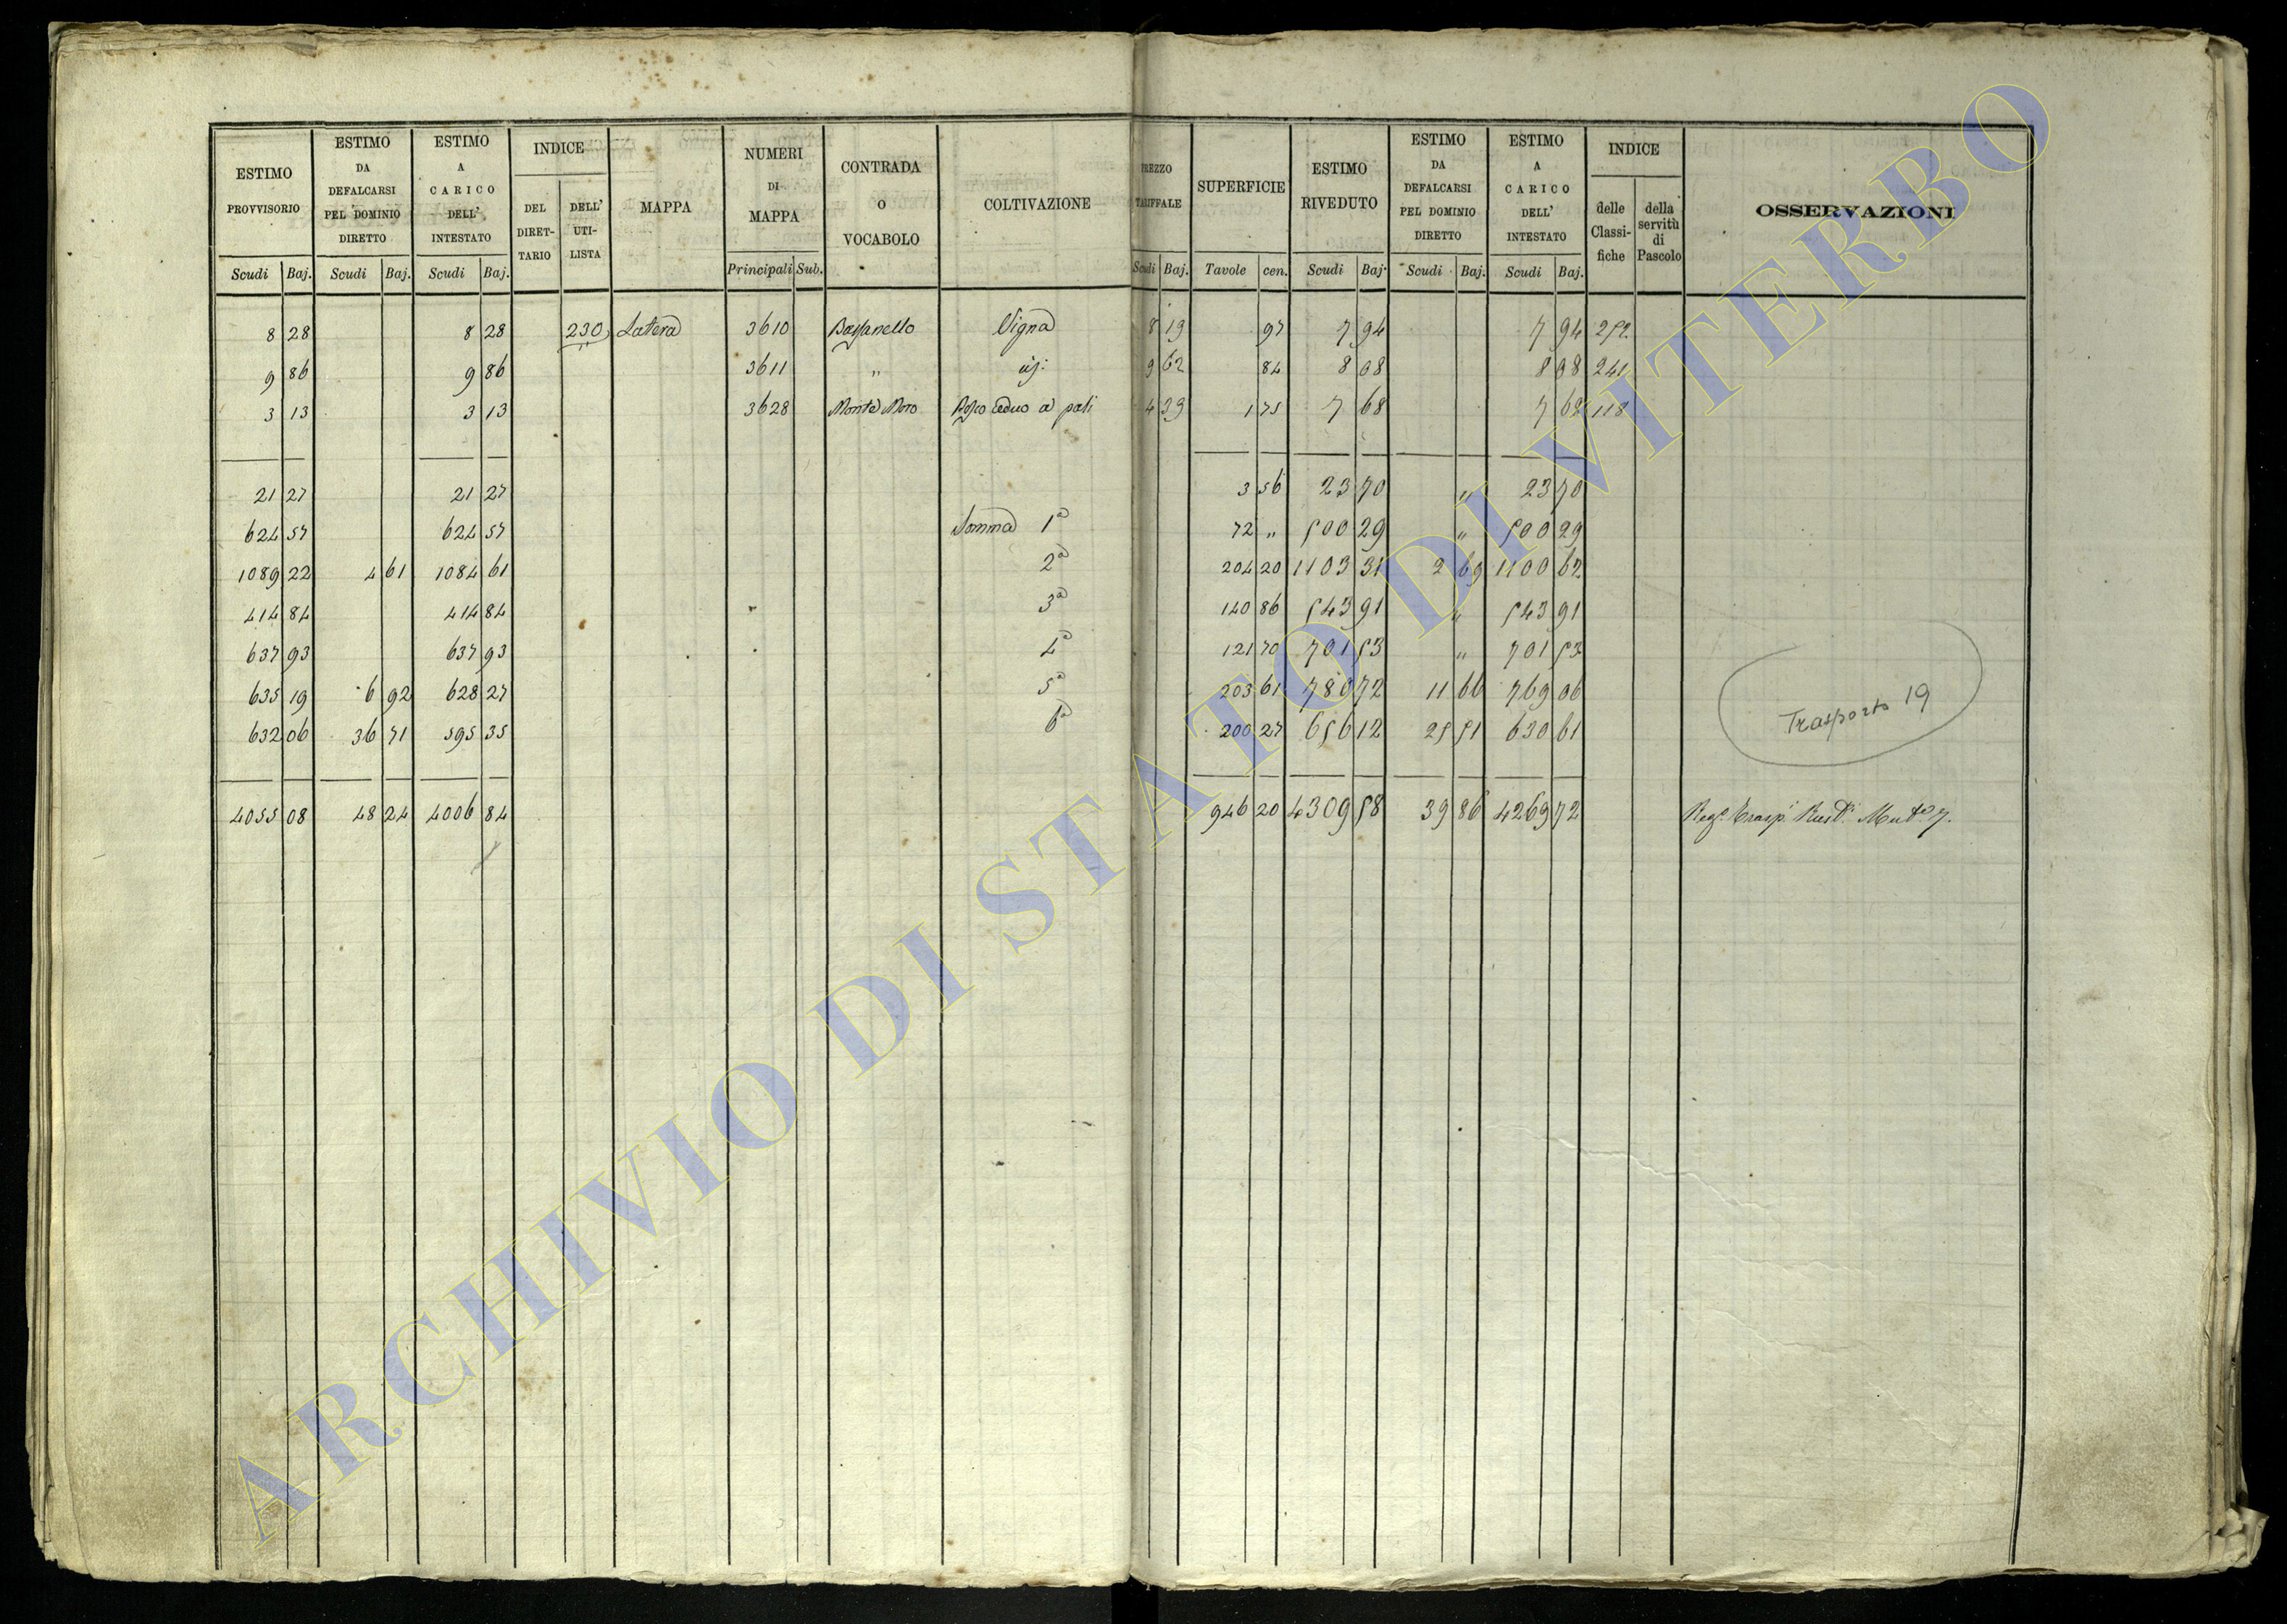 ESTIMO PROVVISORIO Scudi Baj. | ESTIMO DA DEFALCARSI PEL DOMINIO DIRETTO Scudi Baj. | ESTIMO A CARICO DELL' INTESTATO Scudi Baj. | INDICE DEL DIRET-TARIO | DELL' UTI-LISTA | MAPPA | NUMERI DI MAPPA Principali Sub. | CONTRADA O VOCABOLO | COLTIVAZIONE | PREZZO TARIFFALE Scudi Baj. | SUPERFICIE Tavole cen. | ESTIMO RIVEDUTO Scudi Baj. | ESTIMO DA DEFALCARSI PEL DOMINIO DIRETTO Scudi Baj. | ESTIMO A CARICO DELL' INTESTATO Scudi Baj. | INDICE delle Classi-fiche | della servitù di Pascolo | OSSERVAZIONI
8 28 8 28 230 Latera 3610 Bassanello Vigna 8 19 97 7 94 7 94 252
9 86 9 86 3611 " id: 9 62 84 8 08 8 08 241
3 13 3 13 3628 Monte Moro Bosco ceduo a pali 4 39 1 75 7 68 7 68 118
21 27 21 27 3 56 23 70 " 23 70
624 57 624 57 Somma 1a 72 " 500 29 " 500 29
1089 22 4 61 1084 61 2a 204 20 1103 31 2 69 1100 62
414 84 414 84 3a 140 86 543 91 " 543 91
637 93 637 93 4a 121 70 701 53 " 701 53
635 19 6 92 628 27 5a 203 61 780 72 11 66 769 06
632 06 36 71 595 35 6a 200 27 656 12 25 51 630 61
Trasporto 19
4055 08 48 24 4006 84 946 20 4309 58 39 86 4269 72 Rego Trasp. Rust. Mut. 7.
ARCHIVIO DI STATO DI VITERBO